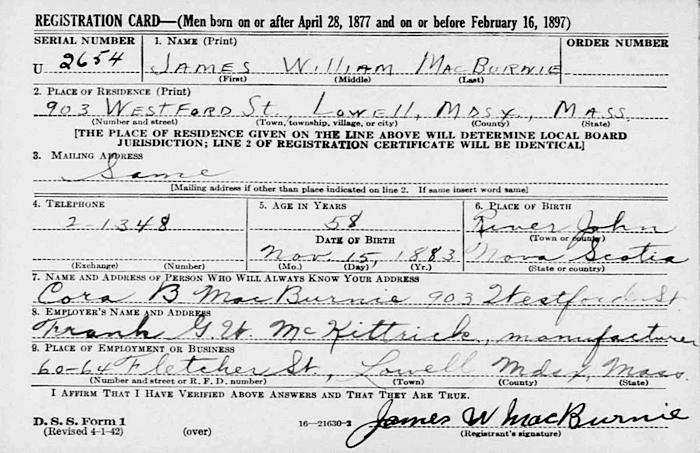 REGISTRATION CARD—(Men born on or after April 28, 1877 and on or before February 16, 1897)
SERIAL NUMBER 1. NAME (Print) ORDER NUMBER
U 2654 JAMES WILLIAM MACBURNIE
(First) (Middle) (Last)
2. PLACE OF RESIDENCE (Print)
903 WESTFORD ST., LOWELL, MDSX, MASS.
(Number and street) (Town, township, village, or city) (County) (State)
[THE PLACE OF RESIDENCE GIVEN ON THE LINE ABOVE WILL DETERMINE LOCAL BOARD
JURISDICTION; LINE 2 OF REGISTRATION CERTIFICATE WILL BE IDENTICAL]
3. MAILING ADDRESS
Same
[Mailing address if other than place indicated on line 2. If same insert word same]
4. TELEPHONE 5. AGE IN YEARS 6. PLACE OF BIRTH
2-1348 58 River John
DATE OF BIRTH (Town or county)
Nov. 15, 1883 Nova Scotia
(Exchange) (Number) (Mo.) (Day) (Yr.) (State or country)
7. NAME AND ADDRESS OF PERSON WHO WILL ALWAYS KNOW YOUR ADDRESS
Cora B MacBurnie 903 Westford St
8. EMPLOYER'S NAME AND ADDRESS
Frank G. W. McKittrick, manufacturer
9. PLACE OF EMPLOYMENT OR BUSINESS
60-64 Fletcher St., Lowell, Mdsx, Mass.
(Number and street or R. F. D. number) (Town) (County) (State)
I AFFIRM THAT I HAVE VERIFIED ABOVE ANSWERS AND THAT THEY ARE TRUE.
James W MacBurnie
D. S. S. Form 1
(Revised 4-1-42) (over) 16—21630-2 (Registrant's signature)